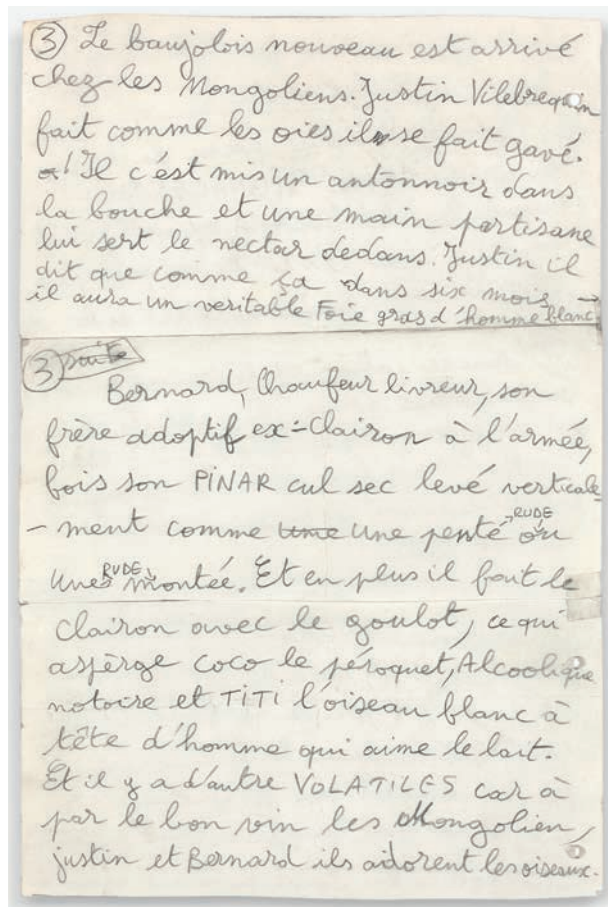 ③ Le baujolois nouveau est arrivé
chez les Mongoliens. Justin Vilebrequin
fait comme les oies il se fait gavé.
! Il c'est mis un antonnoir dans
la bouche et une main partisane
lui sert le nectar dedans. Justin il
dit que comme ça dans six mois →
il aura un veritable Foie gras d'homme blanc.
③ suite
Bernard, Chaufeur livreur, son
frère adoptif ex-Clairon à l'armée,
bois son PiNAR cul sec levé verticale
- ment comme une une penté RUDE ou
une RUDE montée. Et en plus il fait le
clairon avec le goulot, ce qui
aspèrge coco le péroquet, Alcoolique
notoire et TiTi l'oiseau blanc à
tête d'homme qui aime le lait.
Et il y a d'autre VOLATILES car à
par le bon vin les Mongolien,
justin et Bernard ils adorent les oiseaux.